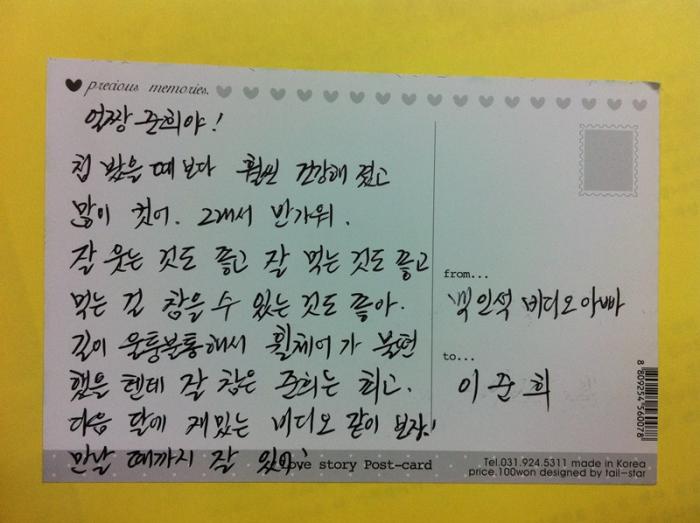 precious memories.
얼짱 준희야!
첨 봤을 때 보다 훨씬 건강해 졌고
많이 컷어. 그래서 반가워.
잘 웃는 것도 좋고 잘 먹는 것도 좋고
먹는 걸 참을 수 있는 것도 좋아.
길이 울퉁불퉁해서 휠체어가 불편
했을 텐데 잘 참은 준희는 최고.
다음 달에 재밌는 비디오 같이 보장!
만날 때까지 잘 있어!
from...
인석 비디오아빠
to...
이준희
8 809254 560078
Love story Post-card
Tel.031.924.5311 made in Korea
price.100won designed by tail-star